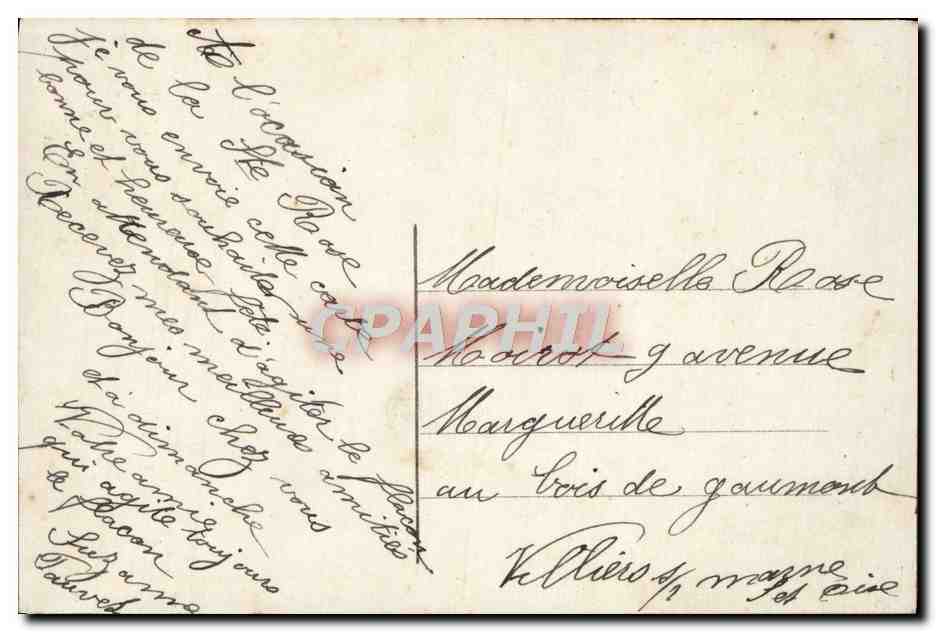 A l'ocasion
de la Ste Rose
je vous envoie cette carte
pour vous souhaiter une
bonne et heureuse fete
En attendant d'agiter le flacon
Recevez mes meilleures amitiés
Bonjour chez vous
et a dimanche
Votre amie toujours
qui agite
le flacon
Suzanne
Tauvet
Mademoiselle Rose
9 avenue
Margueritte
au bois de gaumont
Villiers s/ marne
et oise
CPAPHIL